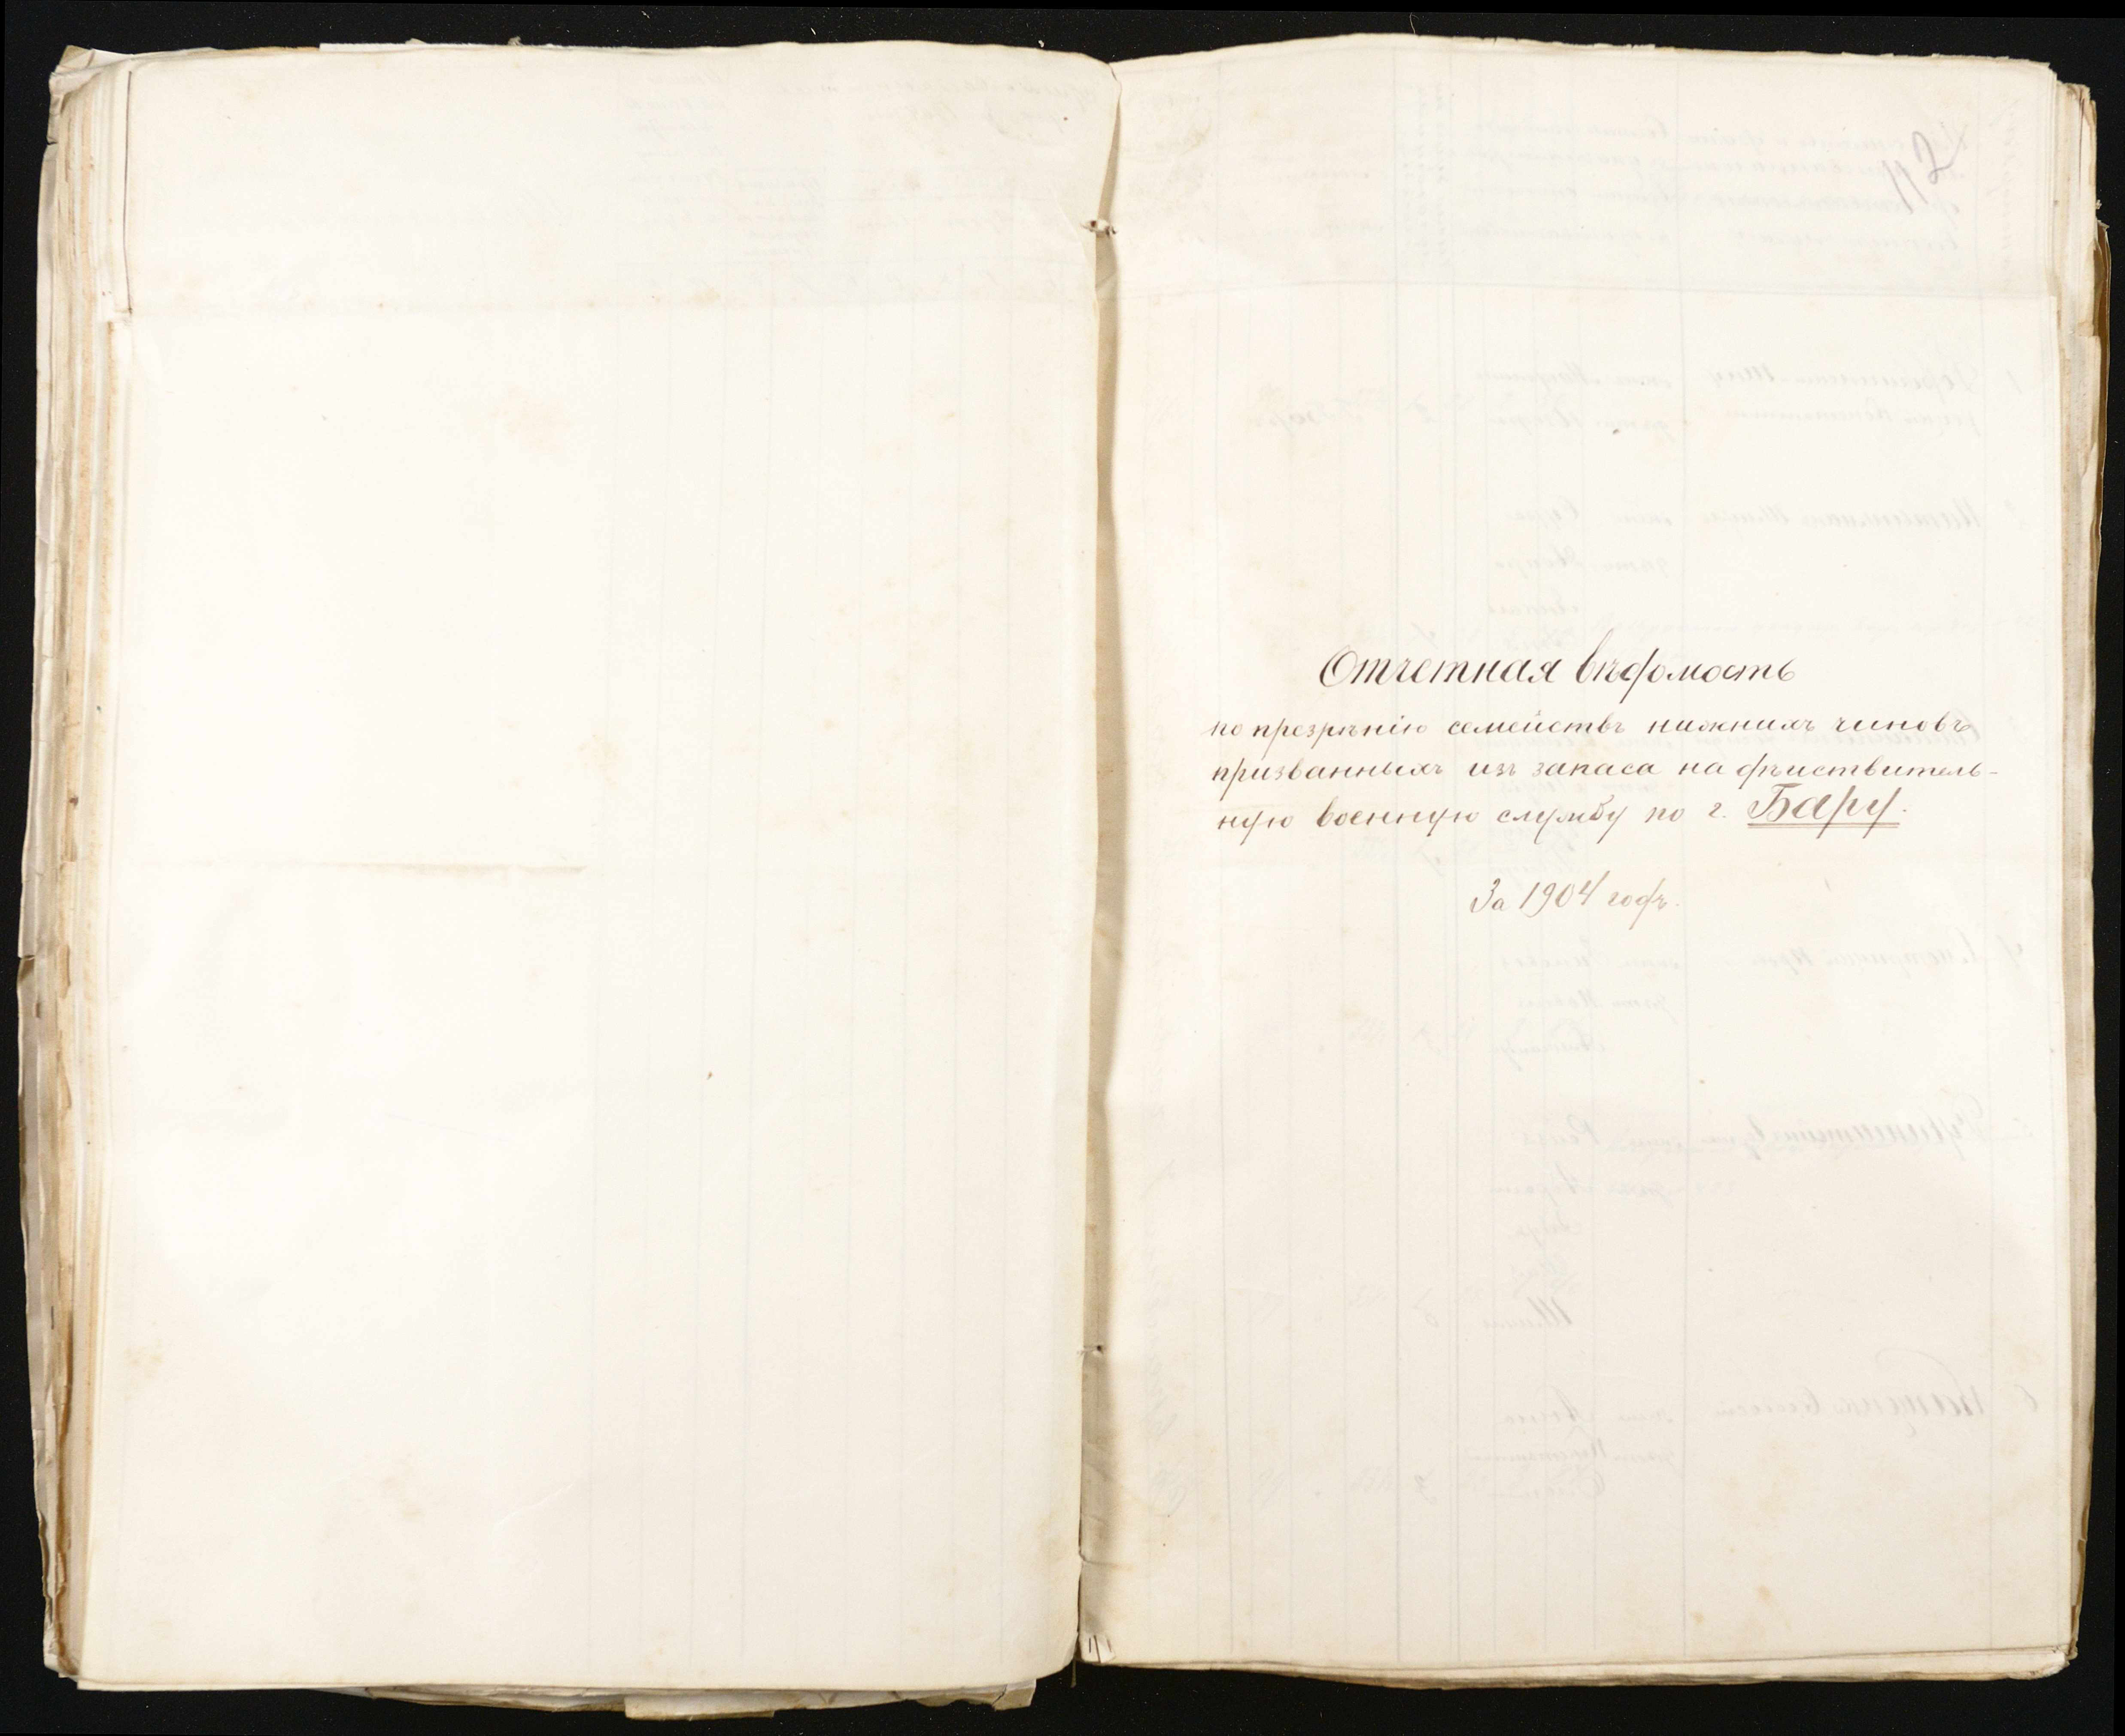 Отчетная вѣдомость
по презрѣнію семействъ нижнихъ чиновъ
призванныхъ изъ запаса на дѣйствитель-
ную военную службу по г. Бару.
За 1904 годъ.